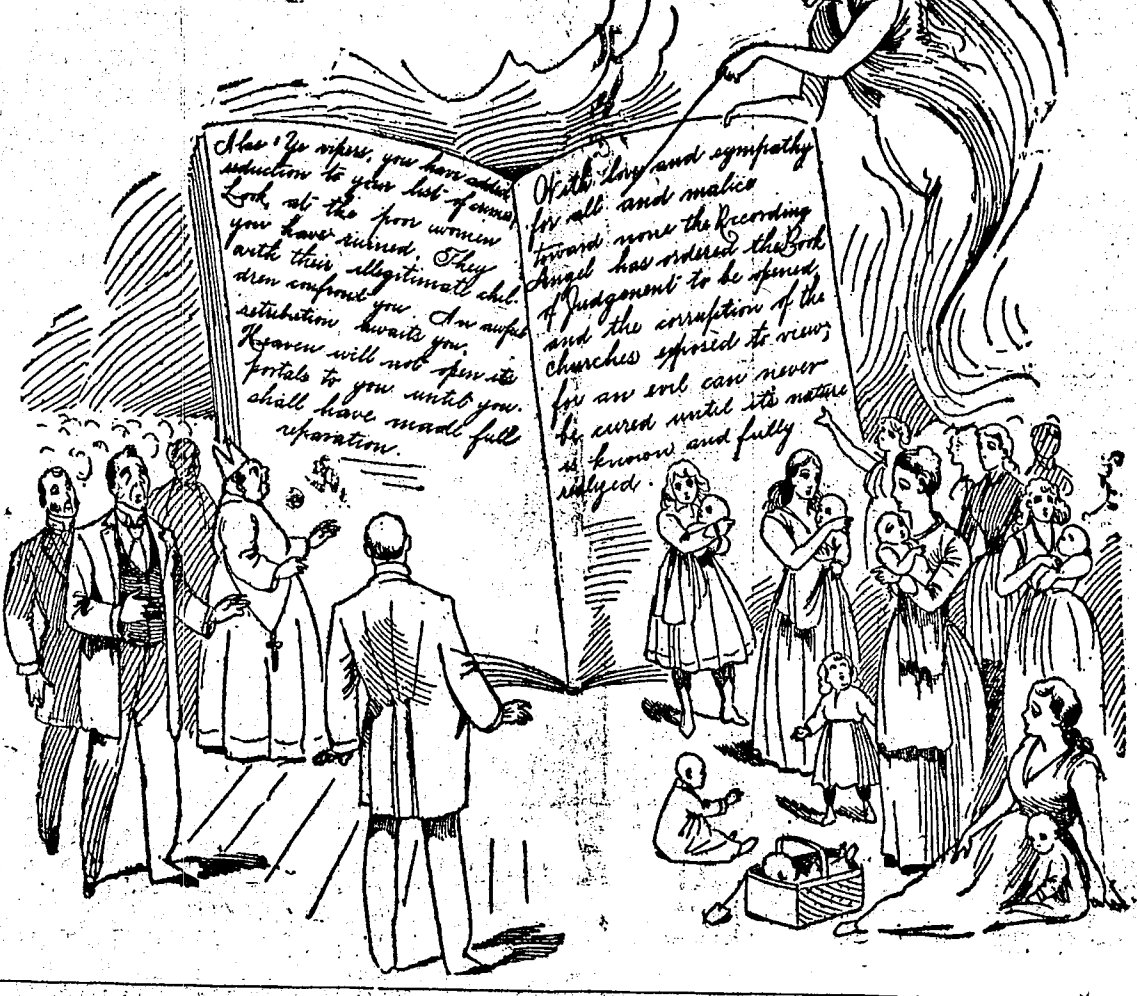 Alas! Ye vipers, you have added
seduction to your list of crimes,
Look, at the poor women
you have ruined. They
with their illegitimate chil-
dren confront you. An awful
retribution awaits you.
Heaven will not open its
portals to you until you
shall have made full
reparation.
With love and sympathy
for all and malice
toward none the Recording
Angel has ordered the Book
of Judgement to be opened,
and the corruption of the
churches exposed to view;
for an evil can never
be cured until its nature
is known and fully